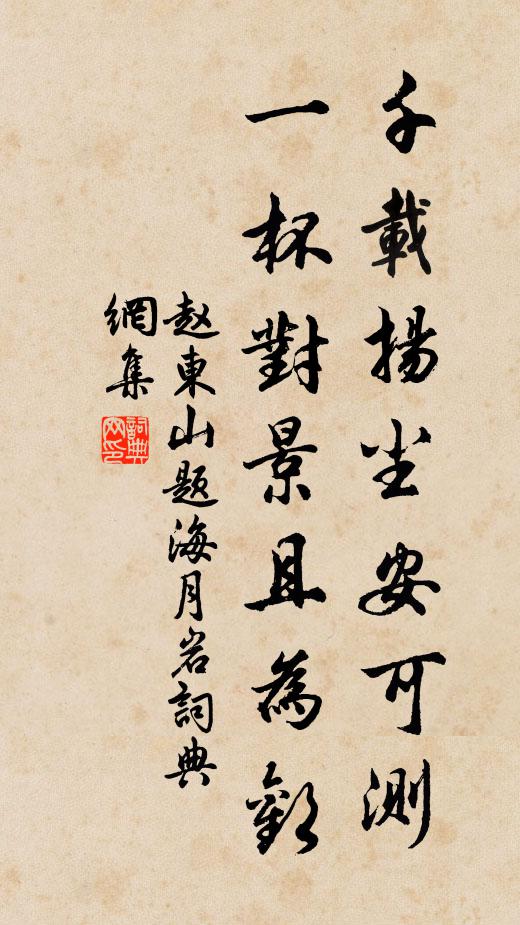 千載揚尘安可測
一杯對景且為歡
赵東山题海月岩詞典
網集
詞典
网印